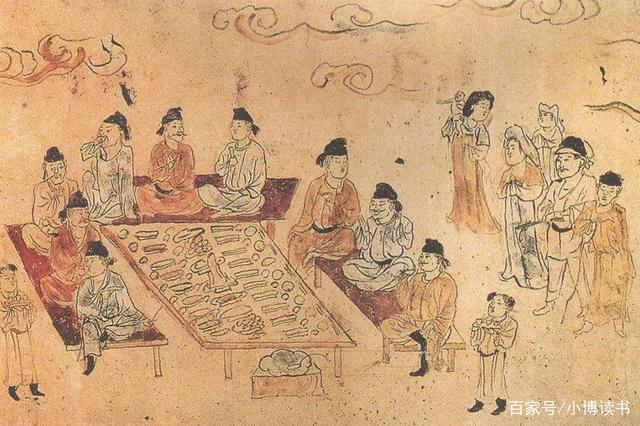 百家号/小博读书